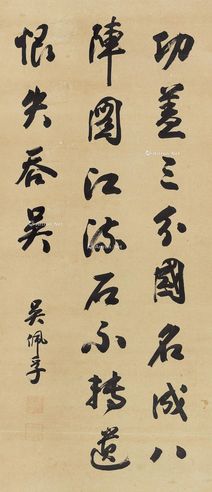 功蓋三分國名成八
陣圖江流石不轉遺
恨失吞吳
吳佩孚